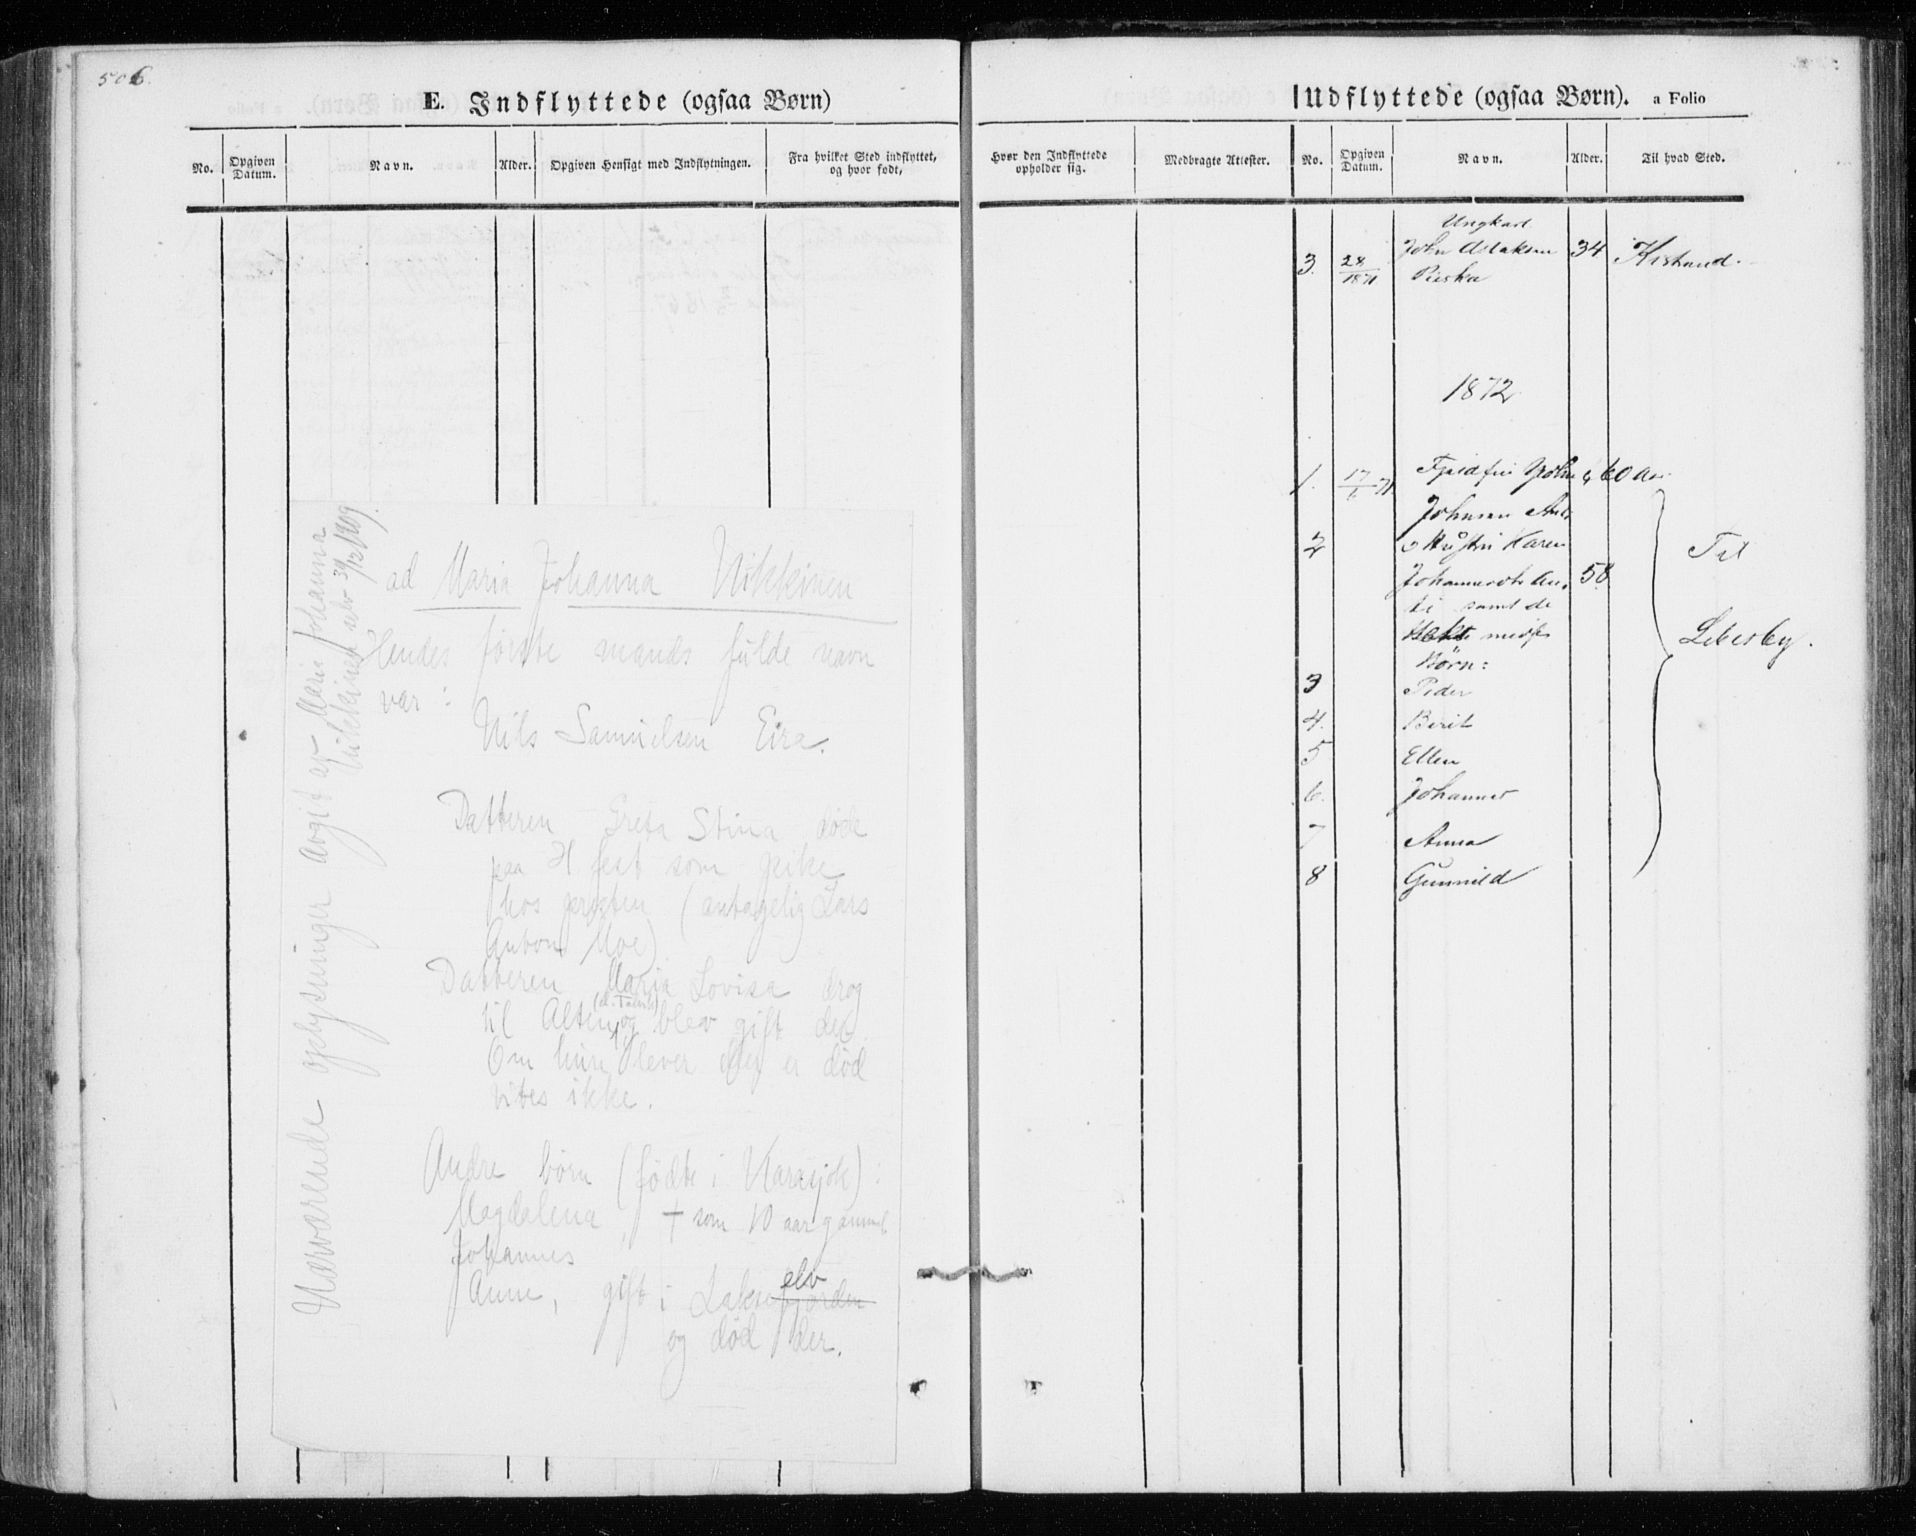 506.
E. Indflyttede (ogsaa Børn)
No.
Opgiven Datum.
Navn.
Alder.
Opgiven Hensigt med Indflytningen.
Fra hvilket Sted indflyttet, og hvor født,
ad Maria Johanna Nikkinen
Hendes første mands fulde navn
var:
Nils Samuelsen Eira.
Datteren Greta Stina døde
paa H. fest som pike
hos presten (antagelig Lars
Anton Moe)
Datteren Maria Lovisa drog
til Alten, og blev gift der.
Om hun lever eller er død
vites ikke.
Andre børn (fødte i Karasjok):
Magdalena, † som 10 aar gammel
Johannes
Anne, gift i Lakselv
og død der.
Nærværende oplysninger avgit av Maria Johanna
Nikkinen selv 30/12 1909.
Udflyttede (ogsaa Børn). a Folio
Hvor den Indflyttede opholder sig.
Medbragte Attester.
No.
Opgiven Datum.
Navn.
Alder.
Til hvad Sted.
Ungkarl
3. 28/1871 John Aslaksen 34 Kistrand.
Pieska
1872
1. 17/1 71 John 60 Aar
Johnsen
2 Hustru Karen
58
samt de
Børn:
Til
Lebesby.
3 Peder
4. Berit
5 Ellen
6. Johannes
7 Anna
8 Gunnild